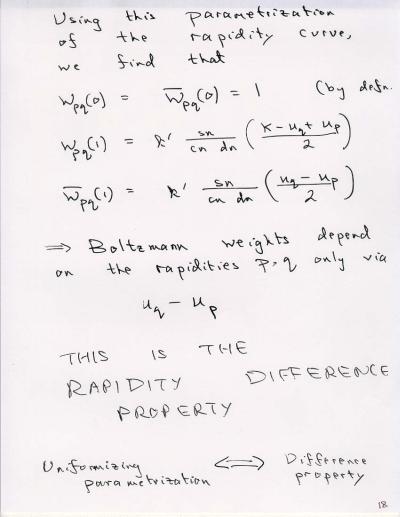 Using this parametrization
of the rapidity curve,
we find that
W_pq(0) = W̅_pq(0) = 1 (by defn.
W_pq(1) = k' sn/(cn dn) ((K - u_q + u_p)/2)
W̅_pq(1) = k' sn/(cn dn) ((u_q - u_p)/2)
⟹ Boltzmann weights depend
on the rapidities p, q only via
u_q - u_p
THIS IS THE
RAPIDITY DIFFERENCE
PROPERTY
Uniformizing parametrization ⟺ Difference property
18